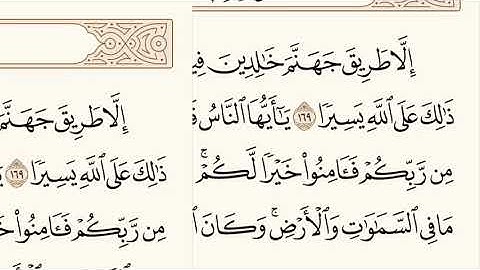 إِلَّا طَرِيقَ جَهَنَّمَ خَٰلِدِينَ
ذَٰلِكَ عَلَى ٱللَّهِ يَسِيرٗا ١٦٩ يَٰٓأَيُّهَا ٱلنَّاسُ
مِن رَّبِّكُمۡ فَـَٔامِنُواْ خَيۡرٗا لَّكُمۡۚ
مَا فِي ٱلسَّمَٰوَٰتِ وَٱلۡأَرۡضِۚ وَكَانَ
إِلَّا طَرِيقَ جَهَنَّمَ
ذَٰلِكَ عَلَى ٱللَّهِ يَسِيرٗا ١٦٩
مِن رَّبِّكُمۡ فَـَٔامِنُواْ